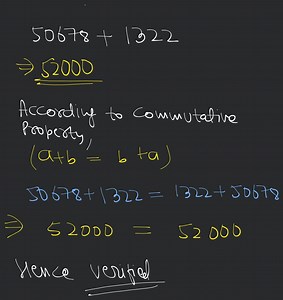 50678 + 1322
⇒ 52000
According to Commutative
Property,
(a+b = b+a)
50678+1322 = 1322+50678
⇒ 52000 = 52000
Hence verified